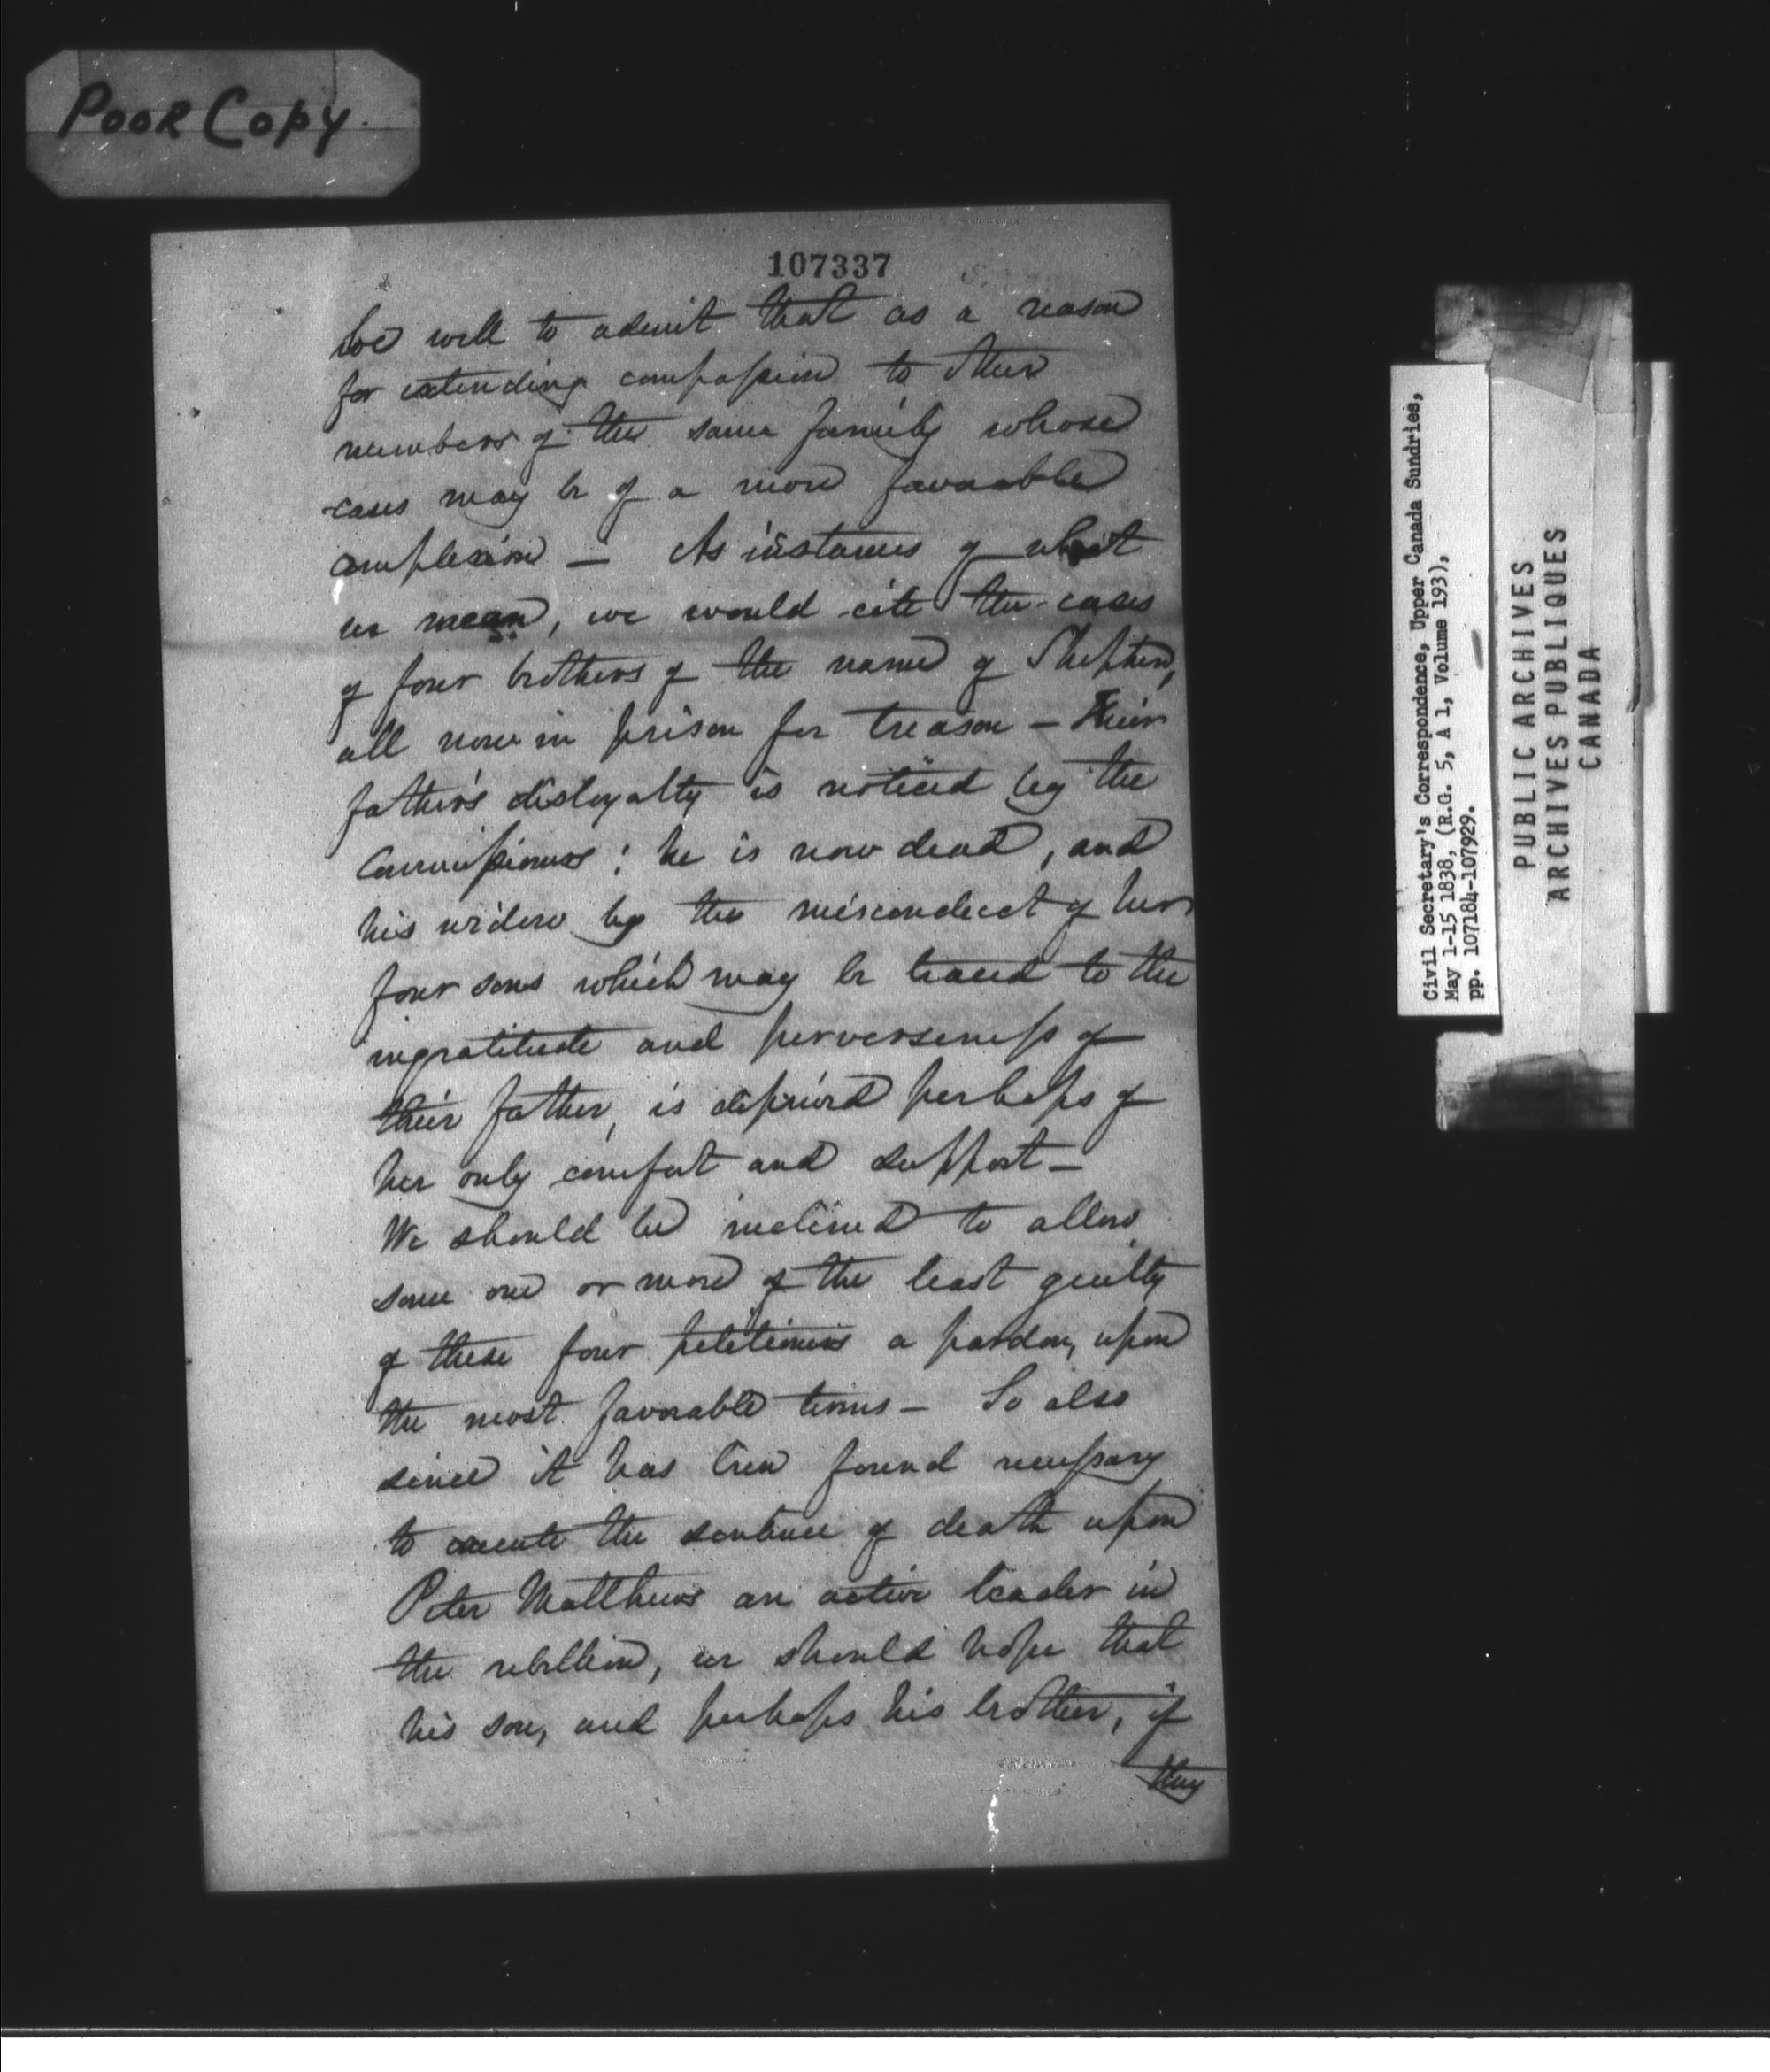 POOR COPY.
107337
be well to admit that as a reason
for extending compassion to other
members of the same family whose
cases may be of a more favorable
complexion — As instances of what
we mean, we would cite the cases
of four brothers of the name of Shepherd,
all now in prison for treason — Their
father's disloyalty is noticed by the
Commissioners; he is now dead, and
his widow by the misconduct of her
four sons which may be traced to the
ingratitude and perverseness of
their father, is deprived perhaps of
her only comfort and support —
We should be inclined to allow
some one or more of the least guilty
of these four petitioners a pardon, upon
the most favorable terms — So also
since it has been found necessary
to execute the sentence of death upon
Peter Matthews an active leader in
the rebellion, we should hope that
his son, and perhaps his brother, if
they
Civil Secretary's Correspondence, Upper Canada Sundries,
May 1-15 1838, (R.G. 5, A 1, Volume 193),
pp. 107184-107929.
PUBLIC ARCHIVES
ARCHIVES PUBLIQUES
CANADA